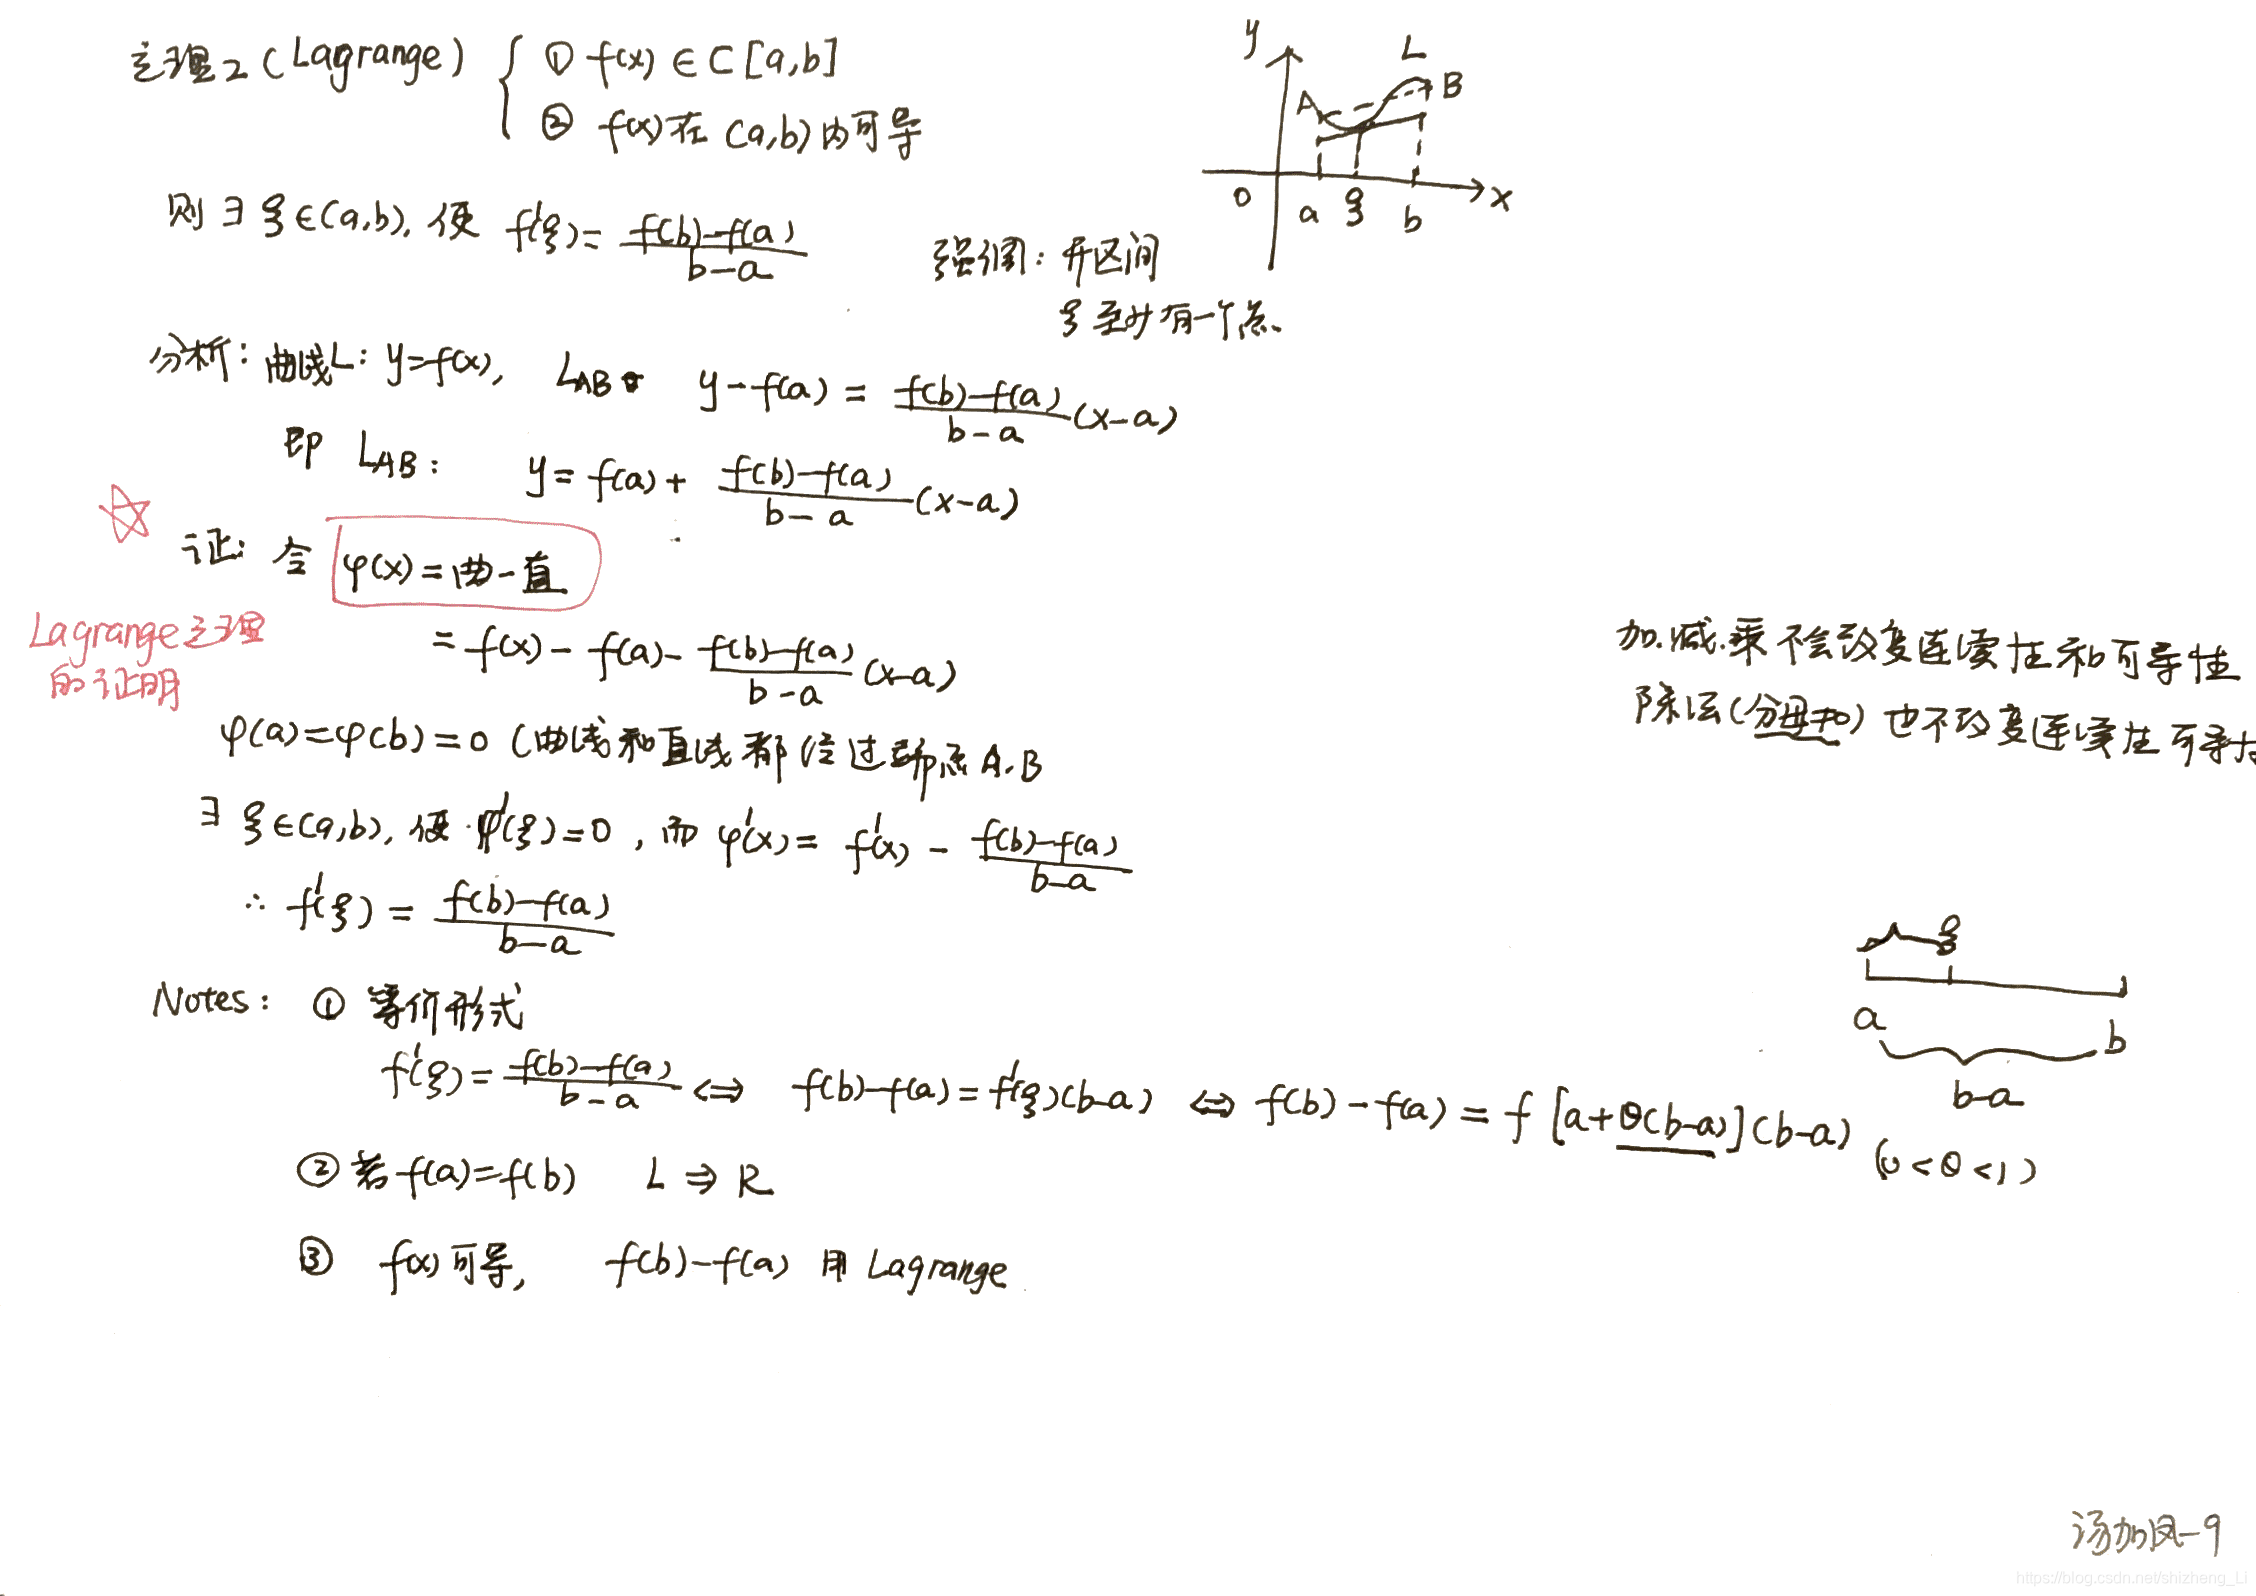 定理2(Lagrange) { ① f(x)∈C[a,b]
② f(x)在(a,b)内可导
则∃ξ∈(a,b),使 f'(ξ)=\frac{f(b)-f(a)}{b-a}
y
L
A
B
O
a
ξ
b
x
强调:开区间
ξ至少有一个点
分析:曲线L:y=f(x), L_{AB}: y-f(a)=\frac{f(b)-f(a)}{b-a}(x-a)
即 L_{AB}: y=f(a)+\frac{f(b)-f(a)}{b-a}(x-a)
证:令 φ(x)=曲-直
Lagrange定理
的证明
=f(x)-f(a)-\frac{f(b)-f(a)}{b-a}(x-a)
加.减.乘不会改变连续性和可导性
除法(分母≠0)也不改变连续性可导性
φ(a)=φ(b)=0(曲线和直线都经过端点A.B
∃ξ∈(a,b),使φ'(ξ)=0,而φ'(x)=f'(x)-\frac{f(b)-f(a)}{b-a}
∴ f'(ξ)=\frac{f(b)-f(a)}{b-a}
Notes: ① 等价形式
f'(ξ)=\frac{f(b)-f(a)}{b-a} ⇔ f(b)-f(a)=f'(ξ)(b-a) ⇔ f(b)-f(a)=f[a+θ(b-a)](b-a) (0<θ<1)
ξ
a
b
b-a
②若f(a)=f(b) L⇒R
③ f(x)可导, f(b)-f(a) 用Lagrange
汤加凤-9
https://blog.csdn.net/shizheng_Li